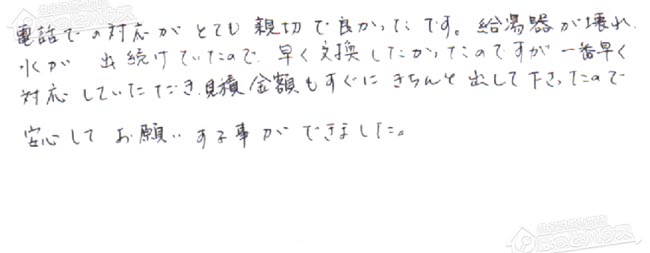 電話での対応がとても親切で良かったです。給湯器が壊れ
水が出続けていたので、早く交換したかったのですが一番早く
対応していただき、見積金額もすぐにきちんと出して下さったので
安心してお願いする事ができました。